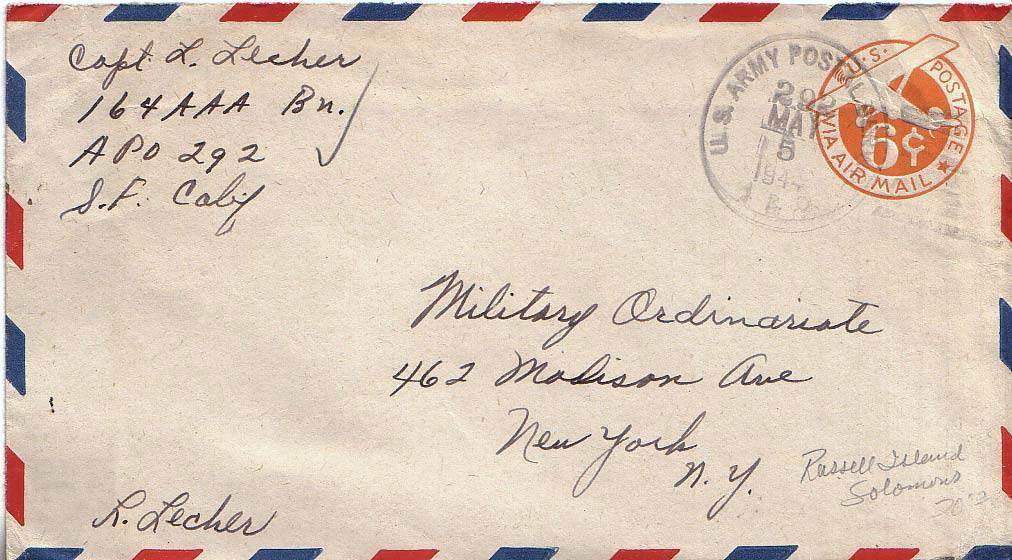 Capt L. Lecher
164 AAA Bn.
APO 292
S.F. Calif
U.S. ARMY POSTAL
292
MAY
5
1944
A.P.O.
U.S. POSTAGE
6¢
VIA AIR MAIL
Military Ordinariate
462 Madison Ave
New York
N.Y.
Russell Island
Solomons
L. Lecher